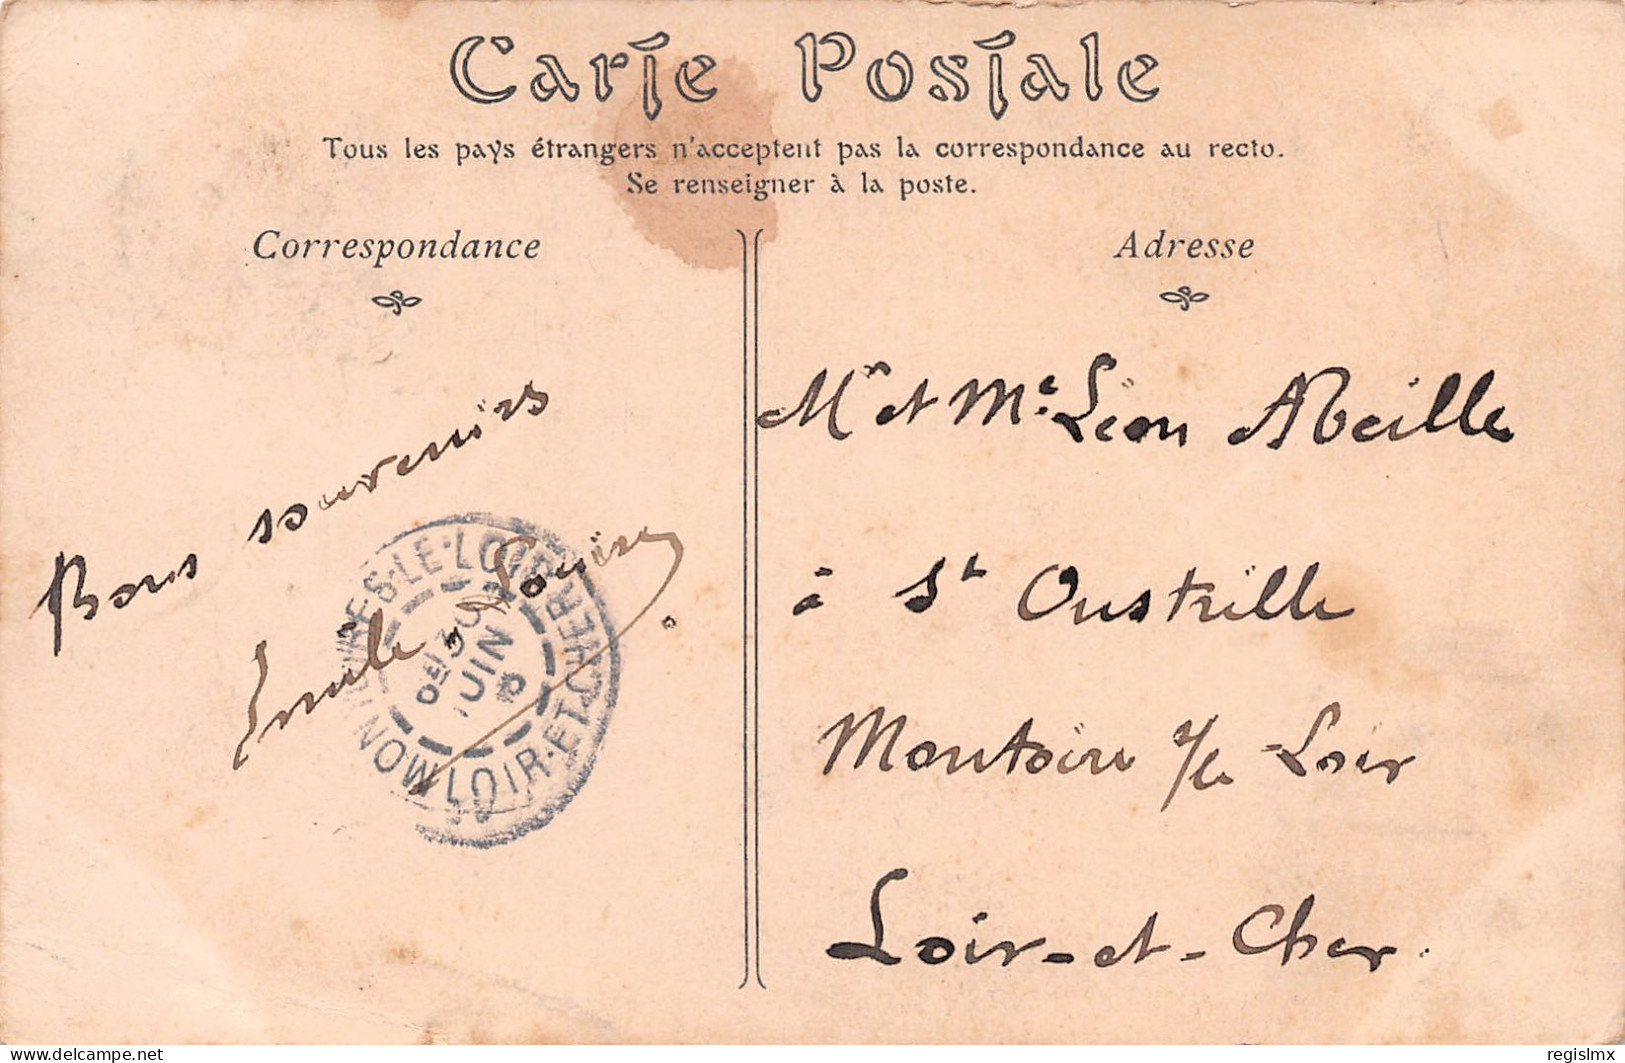 Carte Postale
Tous les pays étrangers n'acceptent pas la correspondance au recto.
Se renseigner à la poste.
Correspondance
Adresse
Bons souvenirs
Emile Louise
Mr et Me. Léon Abeille
à St Oustrille
Montoire s/le Loir
Loir-et-Cher.
LES-LE-LOIR
LOIR-ET-CHER
30
JUIN
delcampe.net
regislmx